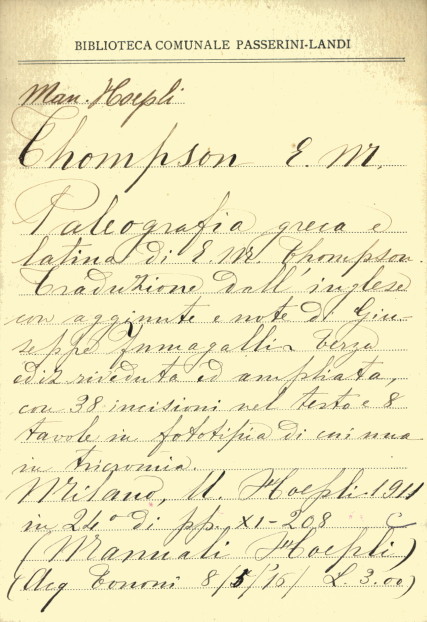 BIBLIOTECA COMUNALE PASSERINI-LANDI
Man. Hoepli
Thompson E. M.
Paleografia greca e
latina di E. M. Thompson.
Traduzione dall'inglese
con aggiunte e note di Giu-
seppe Fumagalli. Terza
ediz riveduta ed ampliata,
con 38 incisioni nel testo e 8
tavole in fototipia di cui una
in tricromia.
Milano, U. Hoepli 1911
in 24° di pp. XI-208
(Manuali Hoepli)
(Acq Bononi 8/5/'16/ L. 3.00)